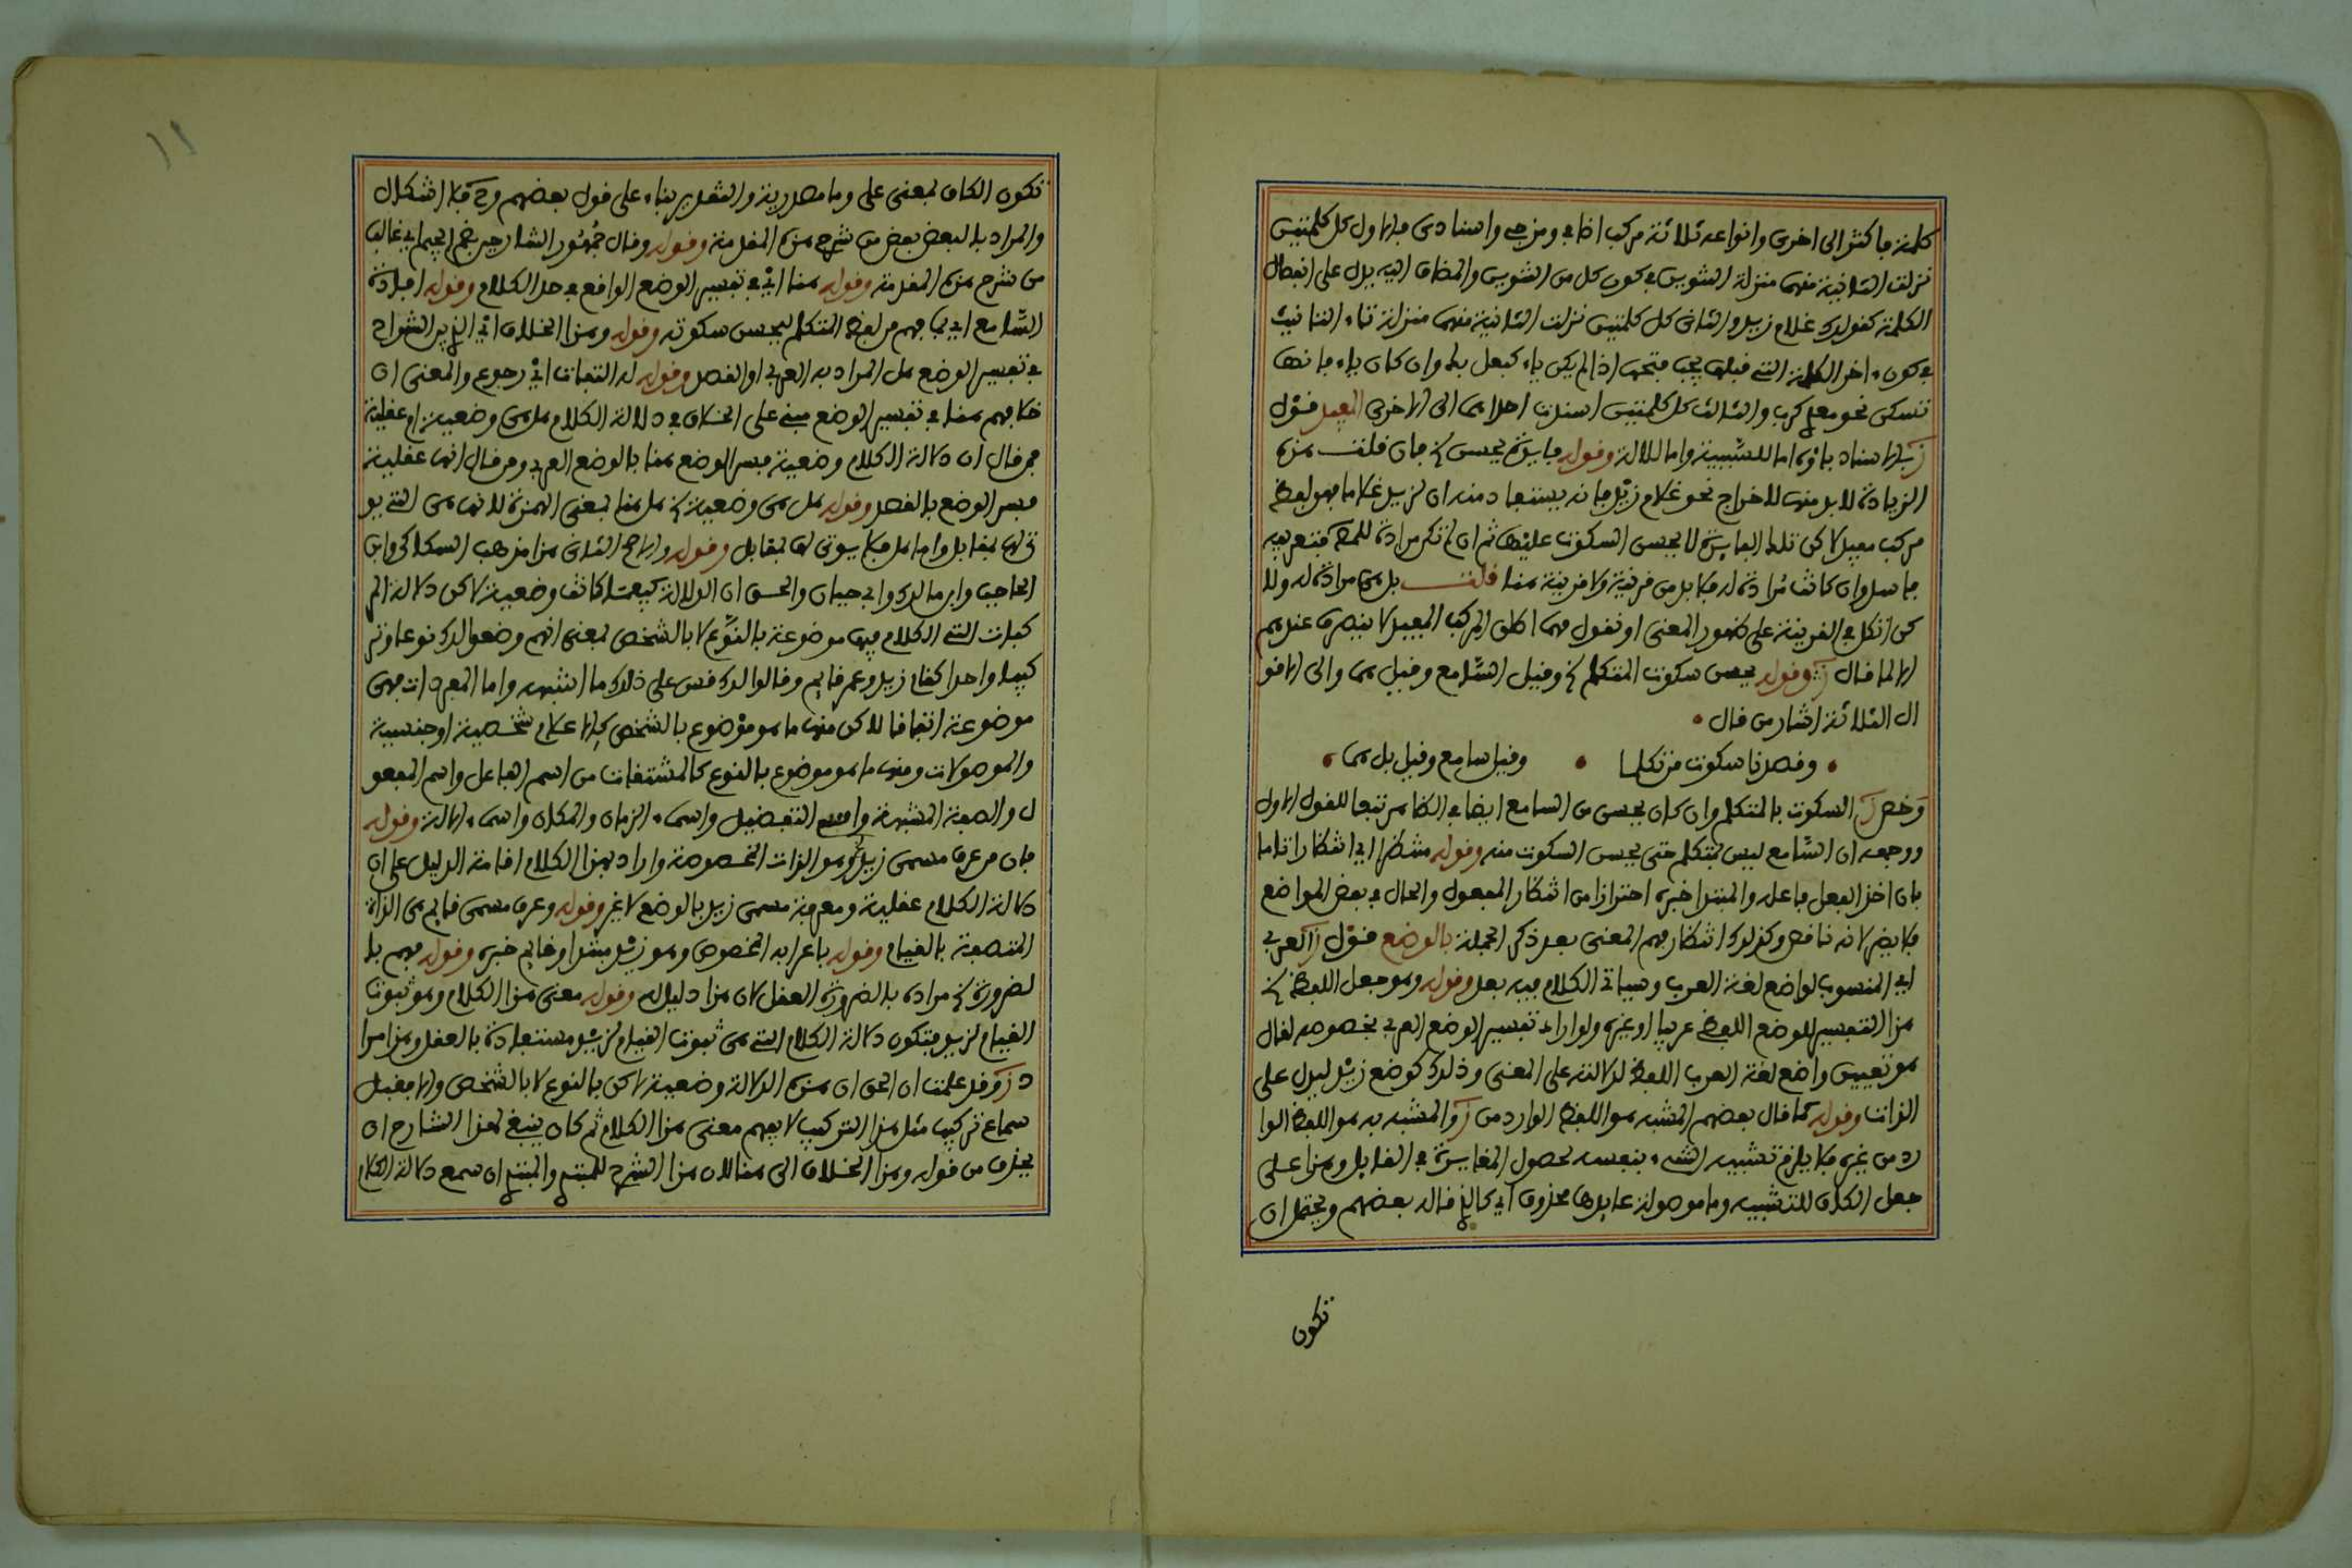 كلمة فاكثر الى اخرى وانواعه ثلاثة مركب اضافي ومزجي واسنادي فالاول كل كلمتين
نزلت الثانية منهما منزلة التنوين في كون كل من التنوين والمضاف اليه يدل على انفصال
الكلمة كقولك غلام زيد والثاني كل كلمتين نزلت الثانية منهما منزلة تاء التانيث
في كون ءاخر الكلمة التي قبلها يجب فتحها اذا لم يكن ياء كبعل بك وان كان ياء فانها
تسكن نحو معدي كرب والثالث كل كلمتين اسندت احداهما الى الاخرى المفيد قول
ز بالاسناد باؤه اما للسببية واما للالة وقوله فايدة يحسن الخ فان قلت هذه
الزيادة لا بد منها لاخراج نحو غلام زيد فانه يستفاد منه ان لزيد غلاما فهو لفظ
مركب مفيد لاكن تلك الفايدة لا يحسن السكوت عليها ثم ان لم تكن مرادة للمص فتعريفه
فاسد وان كانت مرادة له فلا بد من قرينة ولا قرينة هنا قلت بل هي مرادة له ولا
كن اتكل في القرينة على ظهور المعنى او نقول مهما اطلق المركب المفيد لا ينصرف عندهم
الا لما قال ز وقوله يحسن سكوت المتكلم الخ وقيل السامع وقيل هما والى الاقوا
ال الثلاثة اشار من قال
وقصدنا سكوت من تكلما وقيل سامع وقيل بل هما
وخص ز السكوت بالمتكلم وان كان يحسن من السامع ايضا في الظاهر تبعا للقول الاول
ووجهه ان السامع ليس بمتكلم حتى يحسن السكوت منه وقوله منتظرا اي انتظارا تاما
بان اخذ الفعل فاعله والمبتدا خبره احترازا من انتظار المفعول والحال في بعض المواضع
فلا يضر لانه ناقص وكذلك انتظار فهم المعنى بعد ذكر الجملة بالوضع قول ز العربي
اي المنسوب لواضع لغة العرب وسياتي الكلام فيه بعد وقوله وهو جعل اللفظ الخ
هذا التفسير للوضع اللفظي عربيا او غيره ولو اراد تفسير الوضع العربي بخصوصه لقال
هو تعيين واضع لغة العرب اللفظ لدلالته على المعنى وذلك كوضع زيد ليدل على
الذات وقوله كما قال بعضهم المشبه هو اللفظ الوارد من ز والمشبه به هو اللفظ الوا
رد من غيره فلا يلزم تشبيه الشيء بنفسه لحصول المغايرة في القايل وهذا على
جعل الكاف للتشبيه وما موصولة عايدها محذوف اي كالذي قاله بعضهم ويحتمل ان
تكون
١١
تكون الكاف بمعنى على وما مصدرية والتقدير بناء على قول بعضهم وح فلا اشكال
والمراد بالبعض بعض من شرح هذه المقدمة وقوله وقال جمهور الشارحين بضم الجيم اي غالب
من شرح هذه المقدمة وقوله هنا اي في تفسير الوضع الواقع في حد الكلام وقوله افادة
السامع اي بما يفهم من لفظ المتكلم ليحسن سكوته وقوله وهذا الخلاف اي الذي بين الشراح
في تفسير الوضع هل المراد به العربي او القصد وقوله له التفات اي رجوع والمعنى ان
خلافهم هنا في تفسير الوضع مبني على الخلاف في دلالة الكلام هل هي وضعية او عقلية
فمن قال ان دلالة الكلام وضعية فسر الوضع هنا بالوضع العربي ومن قال انها عقلية
فسر الوضع بالقصد وقوله هل هي وضعية الخ هل هنا بمعنى الهمزة لانها هي التي يو
تى لها بمقابل واما هل فلا يوتى لها بمقابل وقوله والاصح الثاني هذا مذهب السكاكي وابن
الحاجب وابن مالك وابي حيان والحق ان الدلالة كيفما كانت وضعية لاكن دلالة المر
كبات التي الكلام فيها موضوعة بالنوع لا بالشخص بمعنى انهم وضعوا لذلك نوعا وتر
كيبا واحدا كقام زيد وعمر قايم وقالوا لك قس على ذلك ما اشبهه واما المفردات فهي
موضوعة اتفاقا لاكن منها ما هو موضوع بالشخص كالاعلام شخصية او جنسية
والموصولات ومنها ما هو موضوع بالنوع كالمشتقات من اسم الفاعل واسم المفعو
ل والصفة المشبهة واسم التفضيل واسماء الزمان والمكان واسماء الالة وقوله
فان من عرف مسمى زيد وهو الذات المخصوصة واراد بهذا الكلام اقامة الدليل على ان
دلالة الكلام عقلية ومعرفة مسمى زيد بالوضع لا غير وقوله وعرف مسمى قايم هي الذات
المتصفة بالقيام وقوله باعرابه المخصوص وهو زيد مبتدا وقايم خبره وقوله فهم با
لضرورة الخ مراده بالضرورة العقل لان هذا دليل له وقوله معنى هذا الكلام وهو ثبوت
القيام لزيد فتكون دلالة الكلام التي هي ثبوت القيام لزيد مستفادة بالعقل وهذا مرا
د ز وقد علمت ان الحق ان هذه الدلالة وضعية لاكن بالنوع لا بالشخص والا فقبل
سماع تركيب مثل هذا التركيب لا يفهم معنى هذا الكلام ثم كان ينبغي لهذا الشارح ان
يحذف من قوله وهذا الخلاف الى هنا لان هذا الشرح للمبتدي والمبتدي ان سمع دلالة الكلام